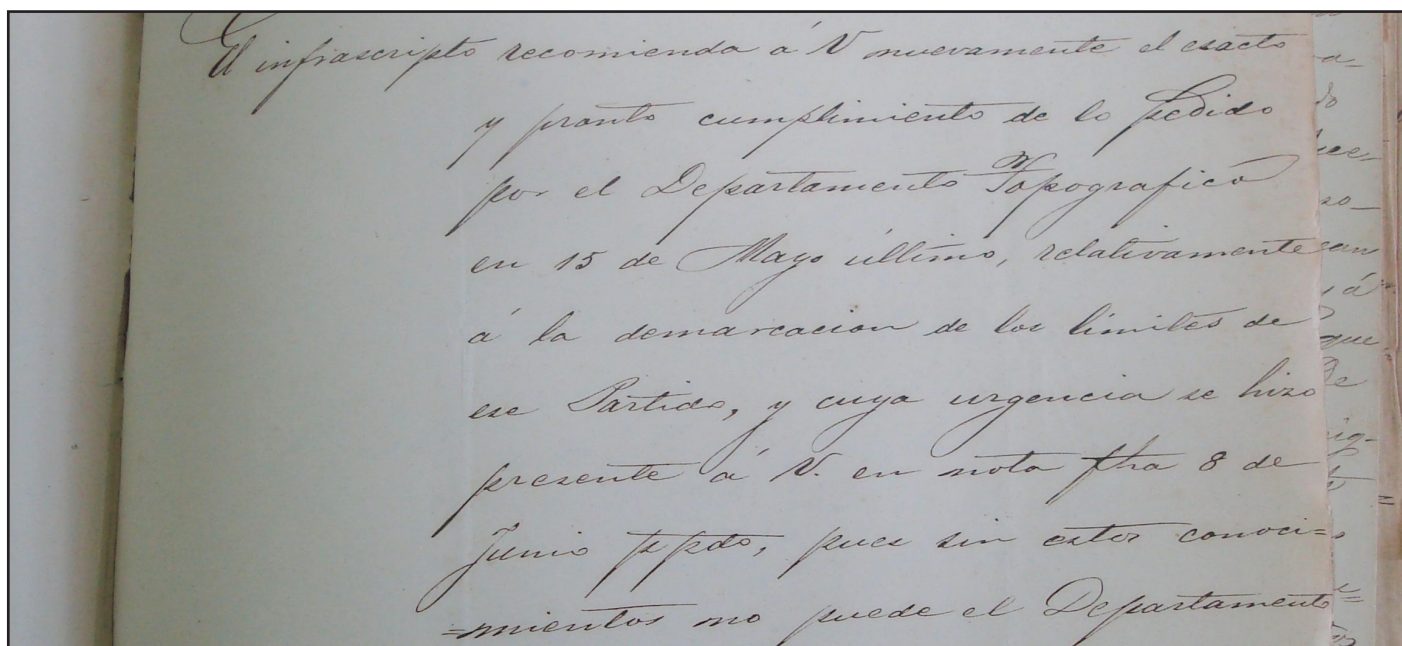 El infrascripto recomienda á V nuevamente el esacto
y pronto cumplimiento de lo pedido
por el Departamento Topografico
en 15 de Mayo último, relativamente
á la demarcacion de los limites de
ese Partido, y cuya urgencia se hizo
presente á V. en nota fha 8 de
Junio ppdo, pues sin estos conoci=
=mientos no puede el Departamento